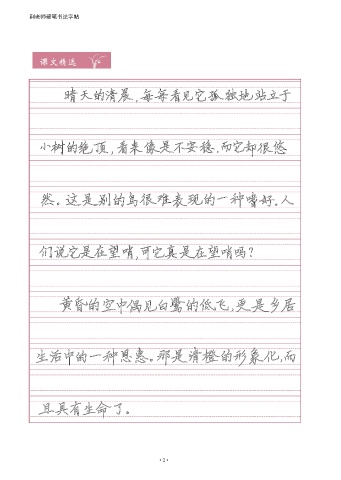 田老师硬笔书法字帖
课文精选
晴天的清晨，每每看见它孤独地站立于
小树的绝顶，看来像是不安稳，而它却很悠
然。这是别的鸟很难表现的一种嗜好。人
们说它是在望哨，可它真是在望哨吗？
黄昏的空中偶见白鹭的低飞，更是乡居
生活中的一种恩惠。那是清澄的形象化，而
且具有生命了。
·2·